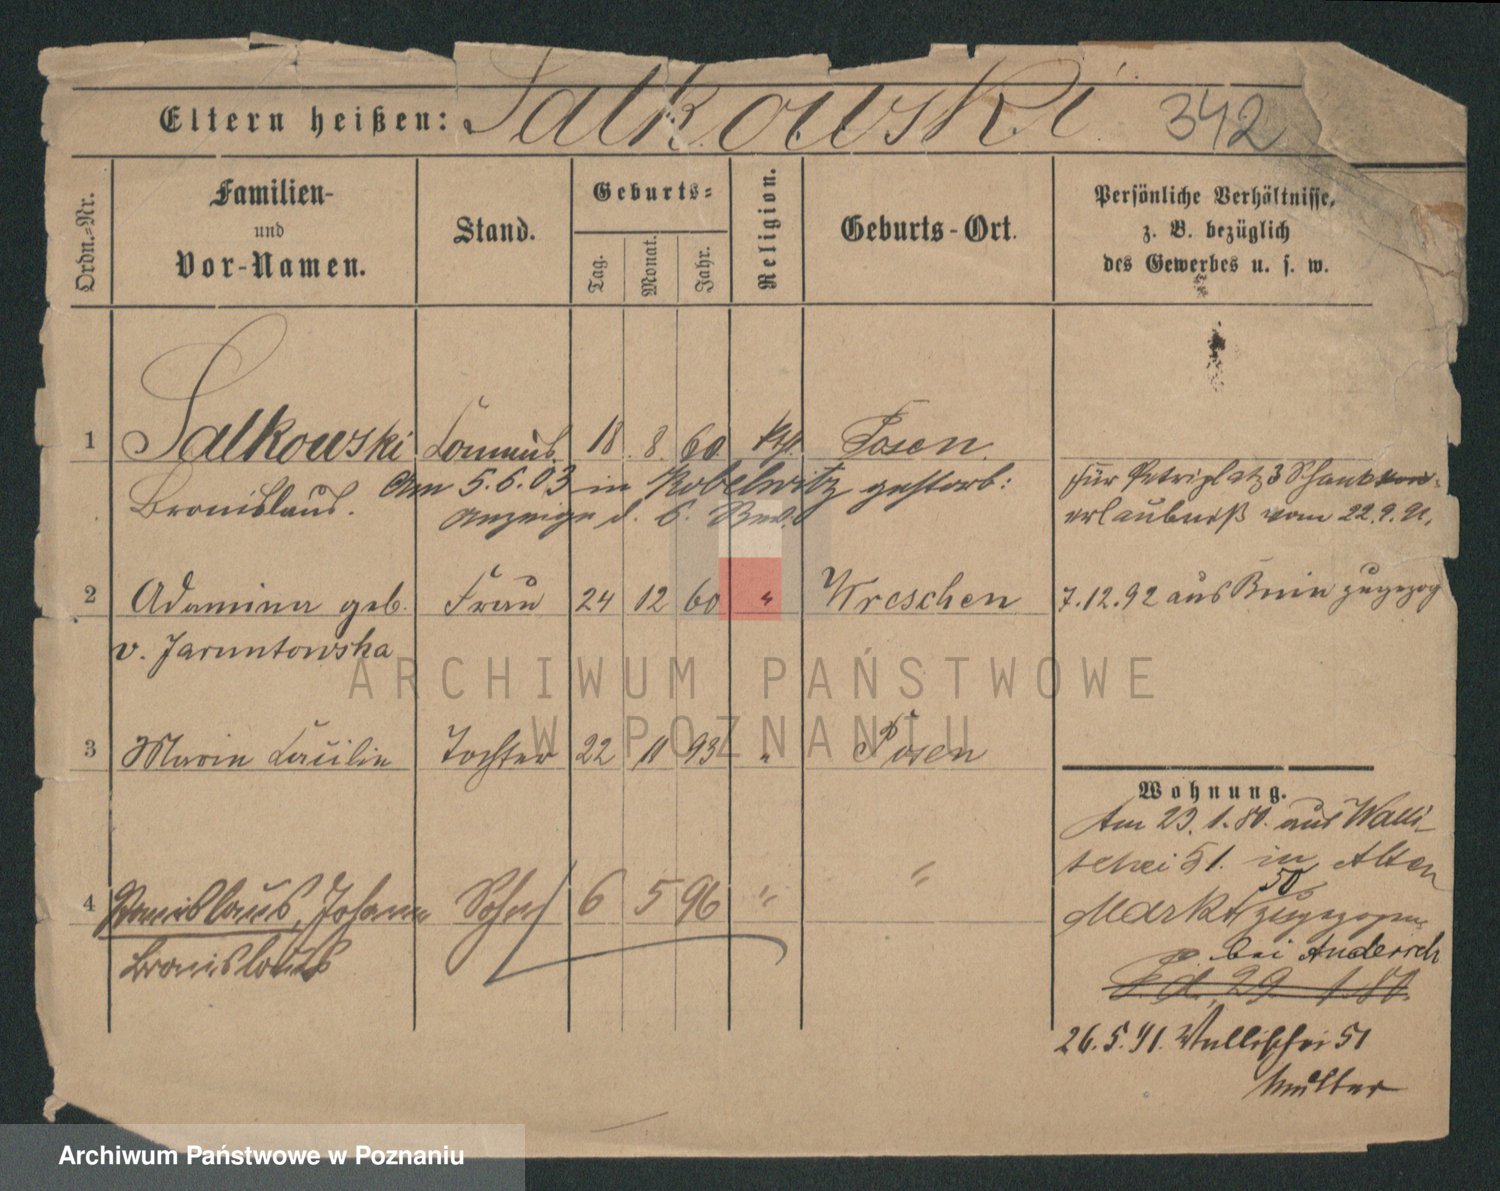 Eltern heißen: Salkowski 342
Ordn.-Nr.
Familien-
und
Vor-Namen.
Stand.
Geburts-
Tag.
Monat.
Jahr.
Religion.
Geburts-Ort.
Persönliche Verhältnisse,
z. B. bezüglich
des Gewerbes u. s. w.
1 Salkowski 18 8 60 kth. Posen
Bronislaus. Am 5.6.03 in Kobelwitz gestorb:
Anzeige d.
für Petriplatz 3 Schank
erlaubniß vom 22.9.91.
2 Adamina geb. Frau 24 12 60 " Wreschen
v. Jaruntowska
7.12.92 aus Bnin zugezog
3 Marie Cäcilie Tochter 22 11 93 " Posen
4 Stanislaus, Johann Sohn 6 5 96 " "
Bronislaus
Wohnung.
Am 23.1.81. aus Walli-
schei 51. in Alten
Markt 50 zugezogen
bei Andersch
P. d. 29. 1.81.
26.5.91. Wallischei 51
ARCHIWUM PAŃSTWOWE
W POZNANIU
Archiwum Państwowe w Poznaniu